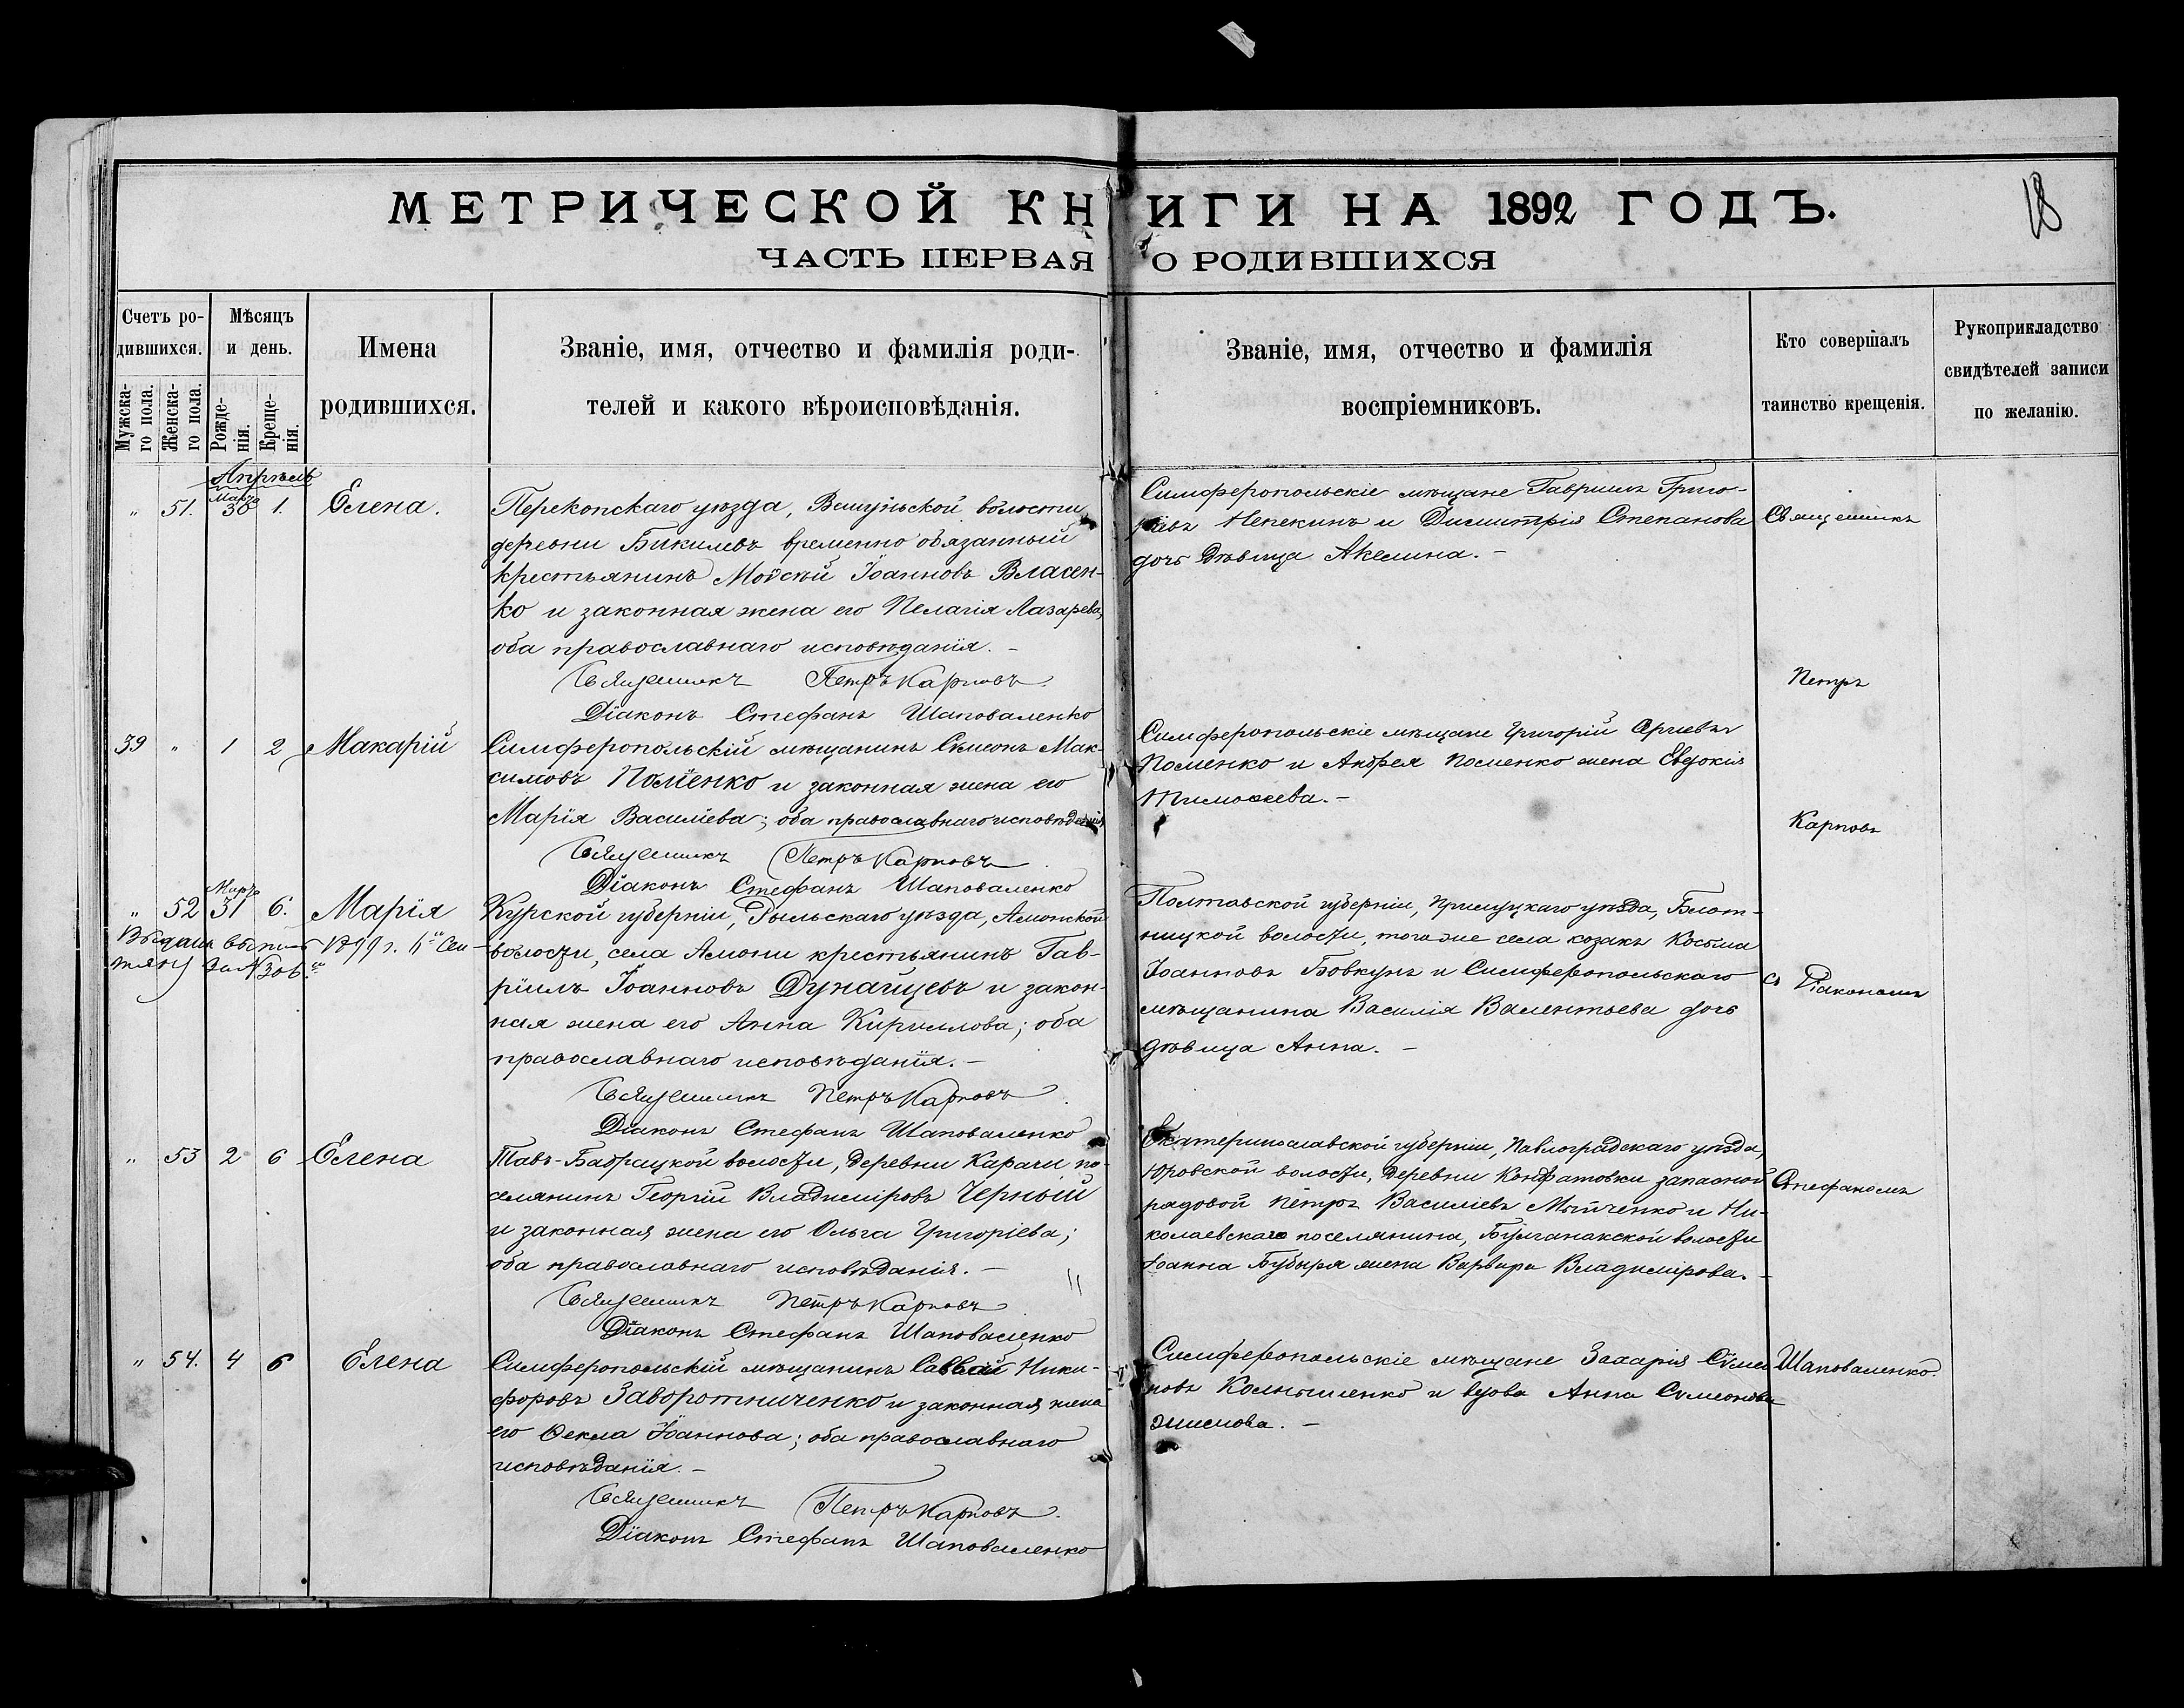 18
МЕТРИЧЕСКОЙ КНИГИ НА 1892 ГОДЪ.
ЧАСТЬ ПЕРВАЯ О РОДИВШИХСЯ
Счетъ ро-
дившихся.
Мужска-
го пола.
Женска-
го пола.
Мѣсяцъ
и день.
Рожде-
нія.
Креще-
нія.
Имена
родившихся.
Званіе, имя, отчество и фамилія роди-
телей и какого вѣроисповѣданія.
Званіе, имя, отчество и фамилія
воспріемниковъ.
Кто совершалъ
таинство крещенія.
Рукоприкладство
свидѣтелей записи
по желанію.
Апрѣль
Марта
" 51. 30 1. Елена.
Перекопскаго уѣзда, волости
деревни Бикилевъ временно обязанный
крестьянинъ Моѵсей Іоанновъ Власен-
ко и законная жена его Пелагія Лазарева,
оба православнаго исповѣданія. –
Священникъ Петръ Карповъ
Діаконъ Стефанъ Шаповаленко
Симферопольскіе мѣщане Гавриилъ Григо-
рьевъ Непекинъ и Димитрія Степанова
дочь дѣвица Акелина. –
Священникъ
Петръ
39 " 1 2 Макарій
Симферопольскій мѣщанинъ Сѵмеонъ Мак-
симовъ Поменко и законная жена его
Марія Василіева; оба православнаго исповѣданія
Священникъ Петръ Карповъ
Діаконъ Стефанъ Шаповаленко
Симферопольскіе мѣщане Григорій Сргиевъ
Поменко и Андрея Поменко жена Евдокія
Тимоѳеева. –
Карповъ
Марта
" 52 31 6. Марія
1899 г. Сен-
за № 306
Курской губерніи, Рыльскаго уѣзда, Амонской
волости, села Амони крестьянинъ Гав-
ріилъ Іоанновъ Дунайцевъ и закон-
ная жена его Анна Кириллова; оба
православнаго исповѣданія. –
Священникъ Петръ Карповъ
Діаконъ Стефанъ Шаповаленко
Полтавской губерніи, Прилуцкаго уѣзда,
волости, того же села козакъ Косьма
Іоанновъ Бовкунъ и Симферопольскаго
мѣщанина Василія Валентьева дочь
дѣвица Анна. –
съ Діакономъ
" 53 2 6 Елена
Тавъ-Бадрацкой волости, деревни Карачи по-
селянинъ Георгій Владиміровъ Черный
и законная жена его Ольга Григоріева;
оба православнаго исповѣданія. –
Священникъ Петръ Карповъ
Діаконъ Стефанъ Шаповаленко
Екатеринославской губерніи, Павлоградскаго уѣзда,
Юровской волости, деревни запасной
рядовой Петръ Василіевъ и Ни-
колаевскаго поселянина, Булганакской волости
Іоанна Бубыря жена Варвара Владимірова. –
Стефаномъ
" 54. 4 6 Елена
Симферопольскій мѣщанинъ Ники-
форовъ Заворотниченко и законная жена
его Ѳекла Іоаннова; оба православнаго
исповѣданія. –
Священникъ Петръ Карповъ
Діаконъ Стефанъ Шаповаленко
Симферопольскіе мѣщане Захарія Сѵмео-
новъ и вдова Анна Сѵмеонова
–
Шаповаленко.